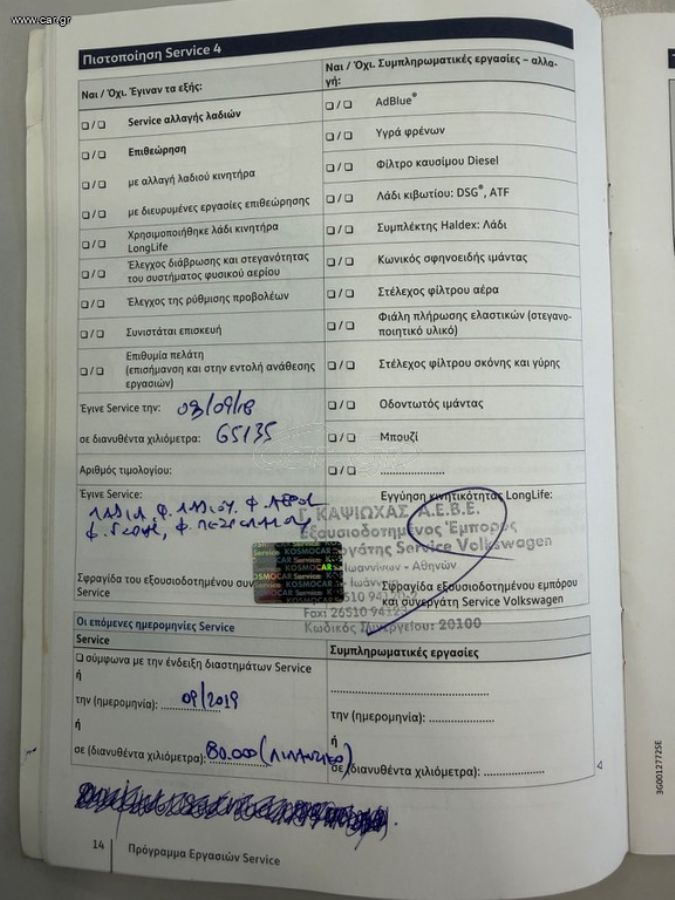 www.car.gr
Πιστοποίηση Service 4
Ναι / Όχι. Έγιναν τα εξής:
❑ / ❑ Service αλλαγής λαδιών
❑ / ❑ Επιθεώρηση
❑ / ❑ με αλλαγή λαδιού κινητήρα
❑ / ❑ με διευρυμένες εργασίες επιθεώρησης
❑ / ❑ Χρησιμοποιήθηκε λάδι κινητήρα
LongLife
❑ / ❑ Έλεγχος διάβρωσης και στεγανότητας
του συστήματος φυσικού αερίου
❑ / ❑ Έλεγχος της ρύθμισης προβολέων
❑ / ❑ Συνιστάται επισκευή
❑ / ❑ Επιθυμία πελάτη
(επισήμανση και στην εντολή ανάθεσης
εργασιών)
Έγινε Service την: 03/09/18
σε διανυθέντα χιλιόμετρα: 65135
Αριθμός τιμολογίου:
Έγινε Service:
ΛΑΔΙΑ, Φ. ΛΑΔΙΟΥ, Φ. ΑΕΡΟΣ
Φ. ΓΥΡΗΣ, Φ. ΠΕΤΡΕΛΑΙΟΥ
Σφραγίδα του εξουσιοδοτημένου συν
Service
Ναι / Όχι. Συμπληρωματικές εργασίες – αλλα-
γή:
❑ / ❑ AdBlue®
❑ / ❑ Υγρά φρένων
❑ / ❑ Φίλτρο καυσίμου Diesel
❑ / ❑ Λάδι κιβωτίου: DSG®, ATF
❑ / ❑ Συμπλέκτης Haldex: Λάδι
❑ / ❑ Κωνικός σφηνοειδής ιμάντας
❑ / ❑ Στέλεχος φίλτρου αέρα
❑ / ❑ Φιάλη πλήρωσης ελαστικών (στεγανο-
ποιητικό υλικό)
❑ / ❑ Στέλεχος φίλτρου σκόνης και γύρης
❑ / ❑ Οδοντωτός ιμάντας
❑ / ❑ Μπουζί
❑ / ❑ ....................
Εγγύηση κινητικότητας LongLife:
Γ. ΚΑΨΙΩΧΑΣ Α.Ε.Β.Ε.
Εξουσιοδοτημένος Έμπορος
Service Volkswagen
Ιωαννίνων - Αθηνών
Fax: 26510 94123
Κωδικός Συνεργείου: 20100
KOSMOCAR Service
Σφραγίδα εξουσιοδοτημένου εμπόρου
και συνεργάτη Service Volkswagen
Οι επόμενες ημερομηνίες Service
Service
❑ σύμφωνα με την ένδειξη διαστημάτων Service
ή
την (ημερομηνία): 09/2019
ή
σε (διανυθέντα χιλιόμετρα): 80.000
Συμπληρωματικές εργασίες
........................................
την (ημερομηνία): ................
ή
σε (διανυθέντα χιλιόμετρα): ...............
14
Πρόγραμμα Εργασιών Service
3G0012772SE